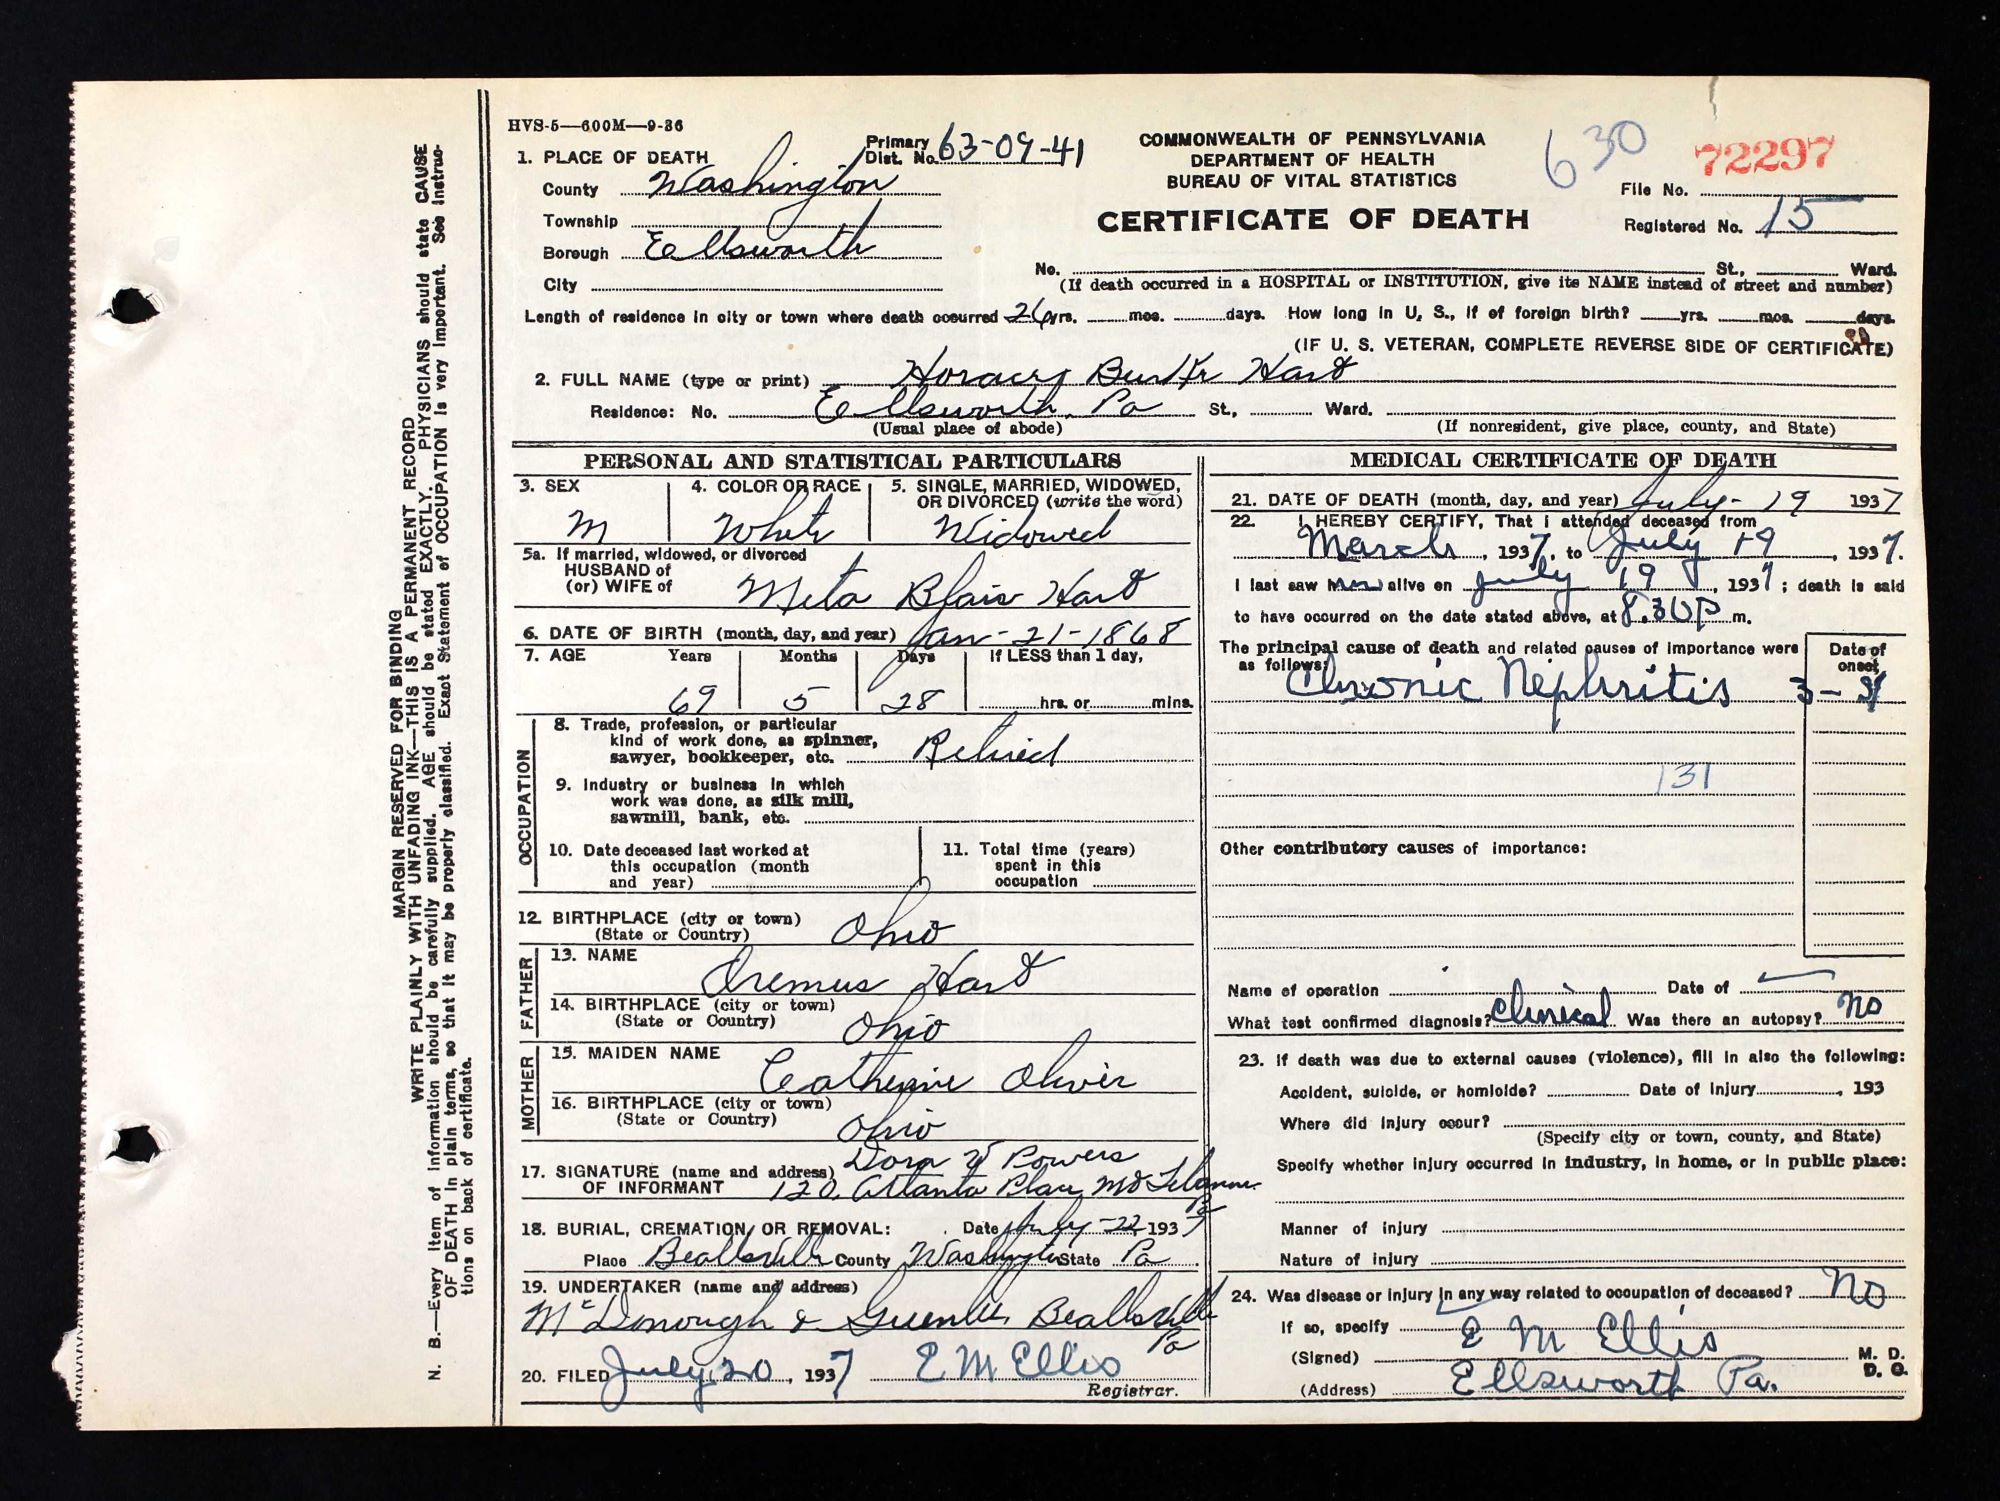 HVS-5—600M—9-36
1. PLACE OF DEATH
Primary Dist. No. 63-09-41
County Washington
Township
Borough Ellsworth
City
COMMONWEALTH OF PENNSYLVANIA
DEPARTMENT OF HEALTH
BUREAU OF VITAL STATISTICS
CERTIFICATE OF DEATH
630
72297
File No.
Registered No. 15
No. St., Ward.
(If death occurred in a HOSPITAL or INSTITUTION, give its NAME instead of street and number)
Length of residence in city or town where death occurred 26 yrs. mos. days. How long in U. S., if of foreign birth? yrs. mos. days.
(IF U. S. VETERAN, COMPLETE REVERSE SIDE OF CERTIFICATE)
2. FULL NAME (type or print) Horace Hart
Residence: No. Ellsworth, Pa St., Ward.
(Usual place of abode) (If nonresident, give place, county, and State)
PERSONAL AND STATISTICAL PARTICULARS
3. SEX
M
4. COLOR OR RACE
White
5. SINGLE, MARRIED, WIDOWED, OR DIVORCED (write the word)
Widowed
5a. If married, widowed, or divorced
HUSBAND of
(or) WIFE of Meta Blair Hart
6. DATE OF BIRTH (month, day, and year) Jan-21-1868
7. AGE Years Months Days If LESS than 1 day,
69 5 28 hrs. or mins.
OCCUPATION
8. Trade, profession, or particular
kind of work done, as spinner,
sawyer, bookkeeper, etc. Retired
9. Industry or business in which
work was done, as silk mill,
sawmill, bank, etc.
10. Date deceased last worked at
this occupation (month
and year)
11. Total time (years)
spent in this
occupation
12. BIRTHPLACE (city or town)
(State or Country) Ohio
FATHER
13. NAME Hart
14. BIRTHPLACE (city or town)
(State or Country) Ohio
MOTHER
15. MAIDEN NAME Catherine Oliver
16. BIRTHPLACE (city or town)
(State or Country) Ohio
17. SIGNATURE (name and address) Dora V Powers
OF INFORMANT 120 Atlanta Place Mt Lebanon
Pa
18. BURIAL, CREMATION, OR REMOVAL: Date July-22 1937
Place Beallsville County Washington State Pa
19. UNDERTAKER (name and address)
McDonough & Beallsville
Pa
20. FILED July 20, 1937 E M Ellis
Registrar.
MEDICAL CERTIFICATE OF DEATH
21. DATE OF DEATH (month, day, and year) July-19 1937
22. I HEREBY CERTIFY, That I attended deceased from
March, 1937, to July 19, 1937.
I last saw him alive on July 19, 1937; death is said
to have occurred on the date stated above, at 8.30 P m.
The principal cause of death and related causes of importance were
as follows:
Date of onset
Chronic Nephritis
131
Other contributory causes of importance:
Name of operation Date of
What test confirmed diagnosis? Clinical Was there an autopsy? No
23. If death was due to external causes (violence), fill in also the following:
Accident, suicide, or homicide? Date of injury, 193
Where did injury occur?
(Specify city or town, county, and State)
Specify whether injury occurred in industry, in home, or in public place:
Manner of injury
Nature of injury
24. Was disease or injury in any way related to occupation of deceased? No
If so, specify
(Signed) E M Ellis M. D.
D. O.
(Address) Ellsworth Pa.
MARGIN RESERVED FOR BINDING
WRITE PLAINLY WITH UNFADING INK—THIS IS A PERMANENT RECORD
N. B.—Every item of information should be carefully supplied. AGE should be stated EXACTLY. PHYSICIANS should state CAUSE
OF DEATH in plain terms, so that it may be properly classified. Exact Statement of OCCUPATION is very important. See instruc-
tions on back of certificate.